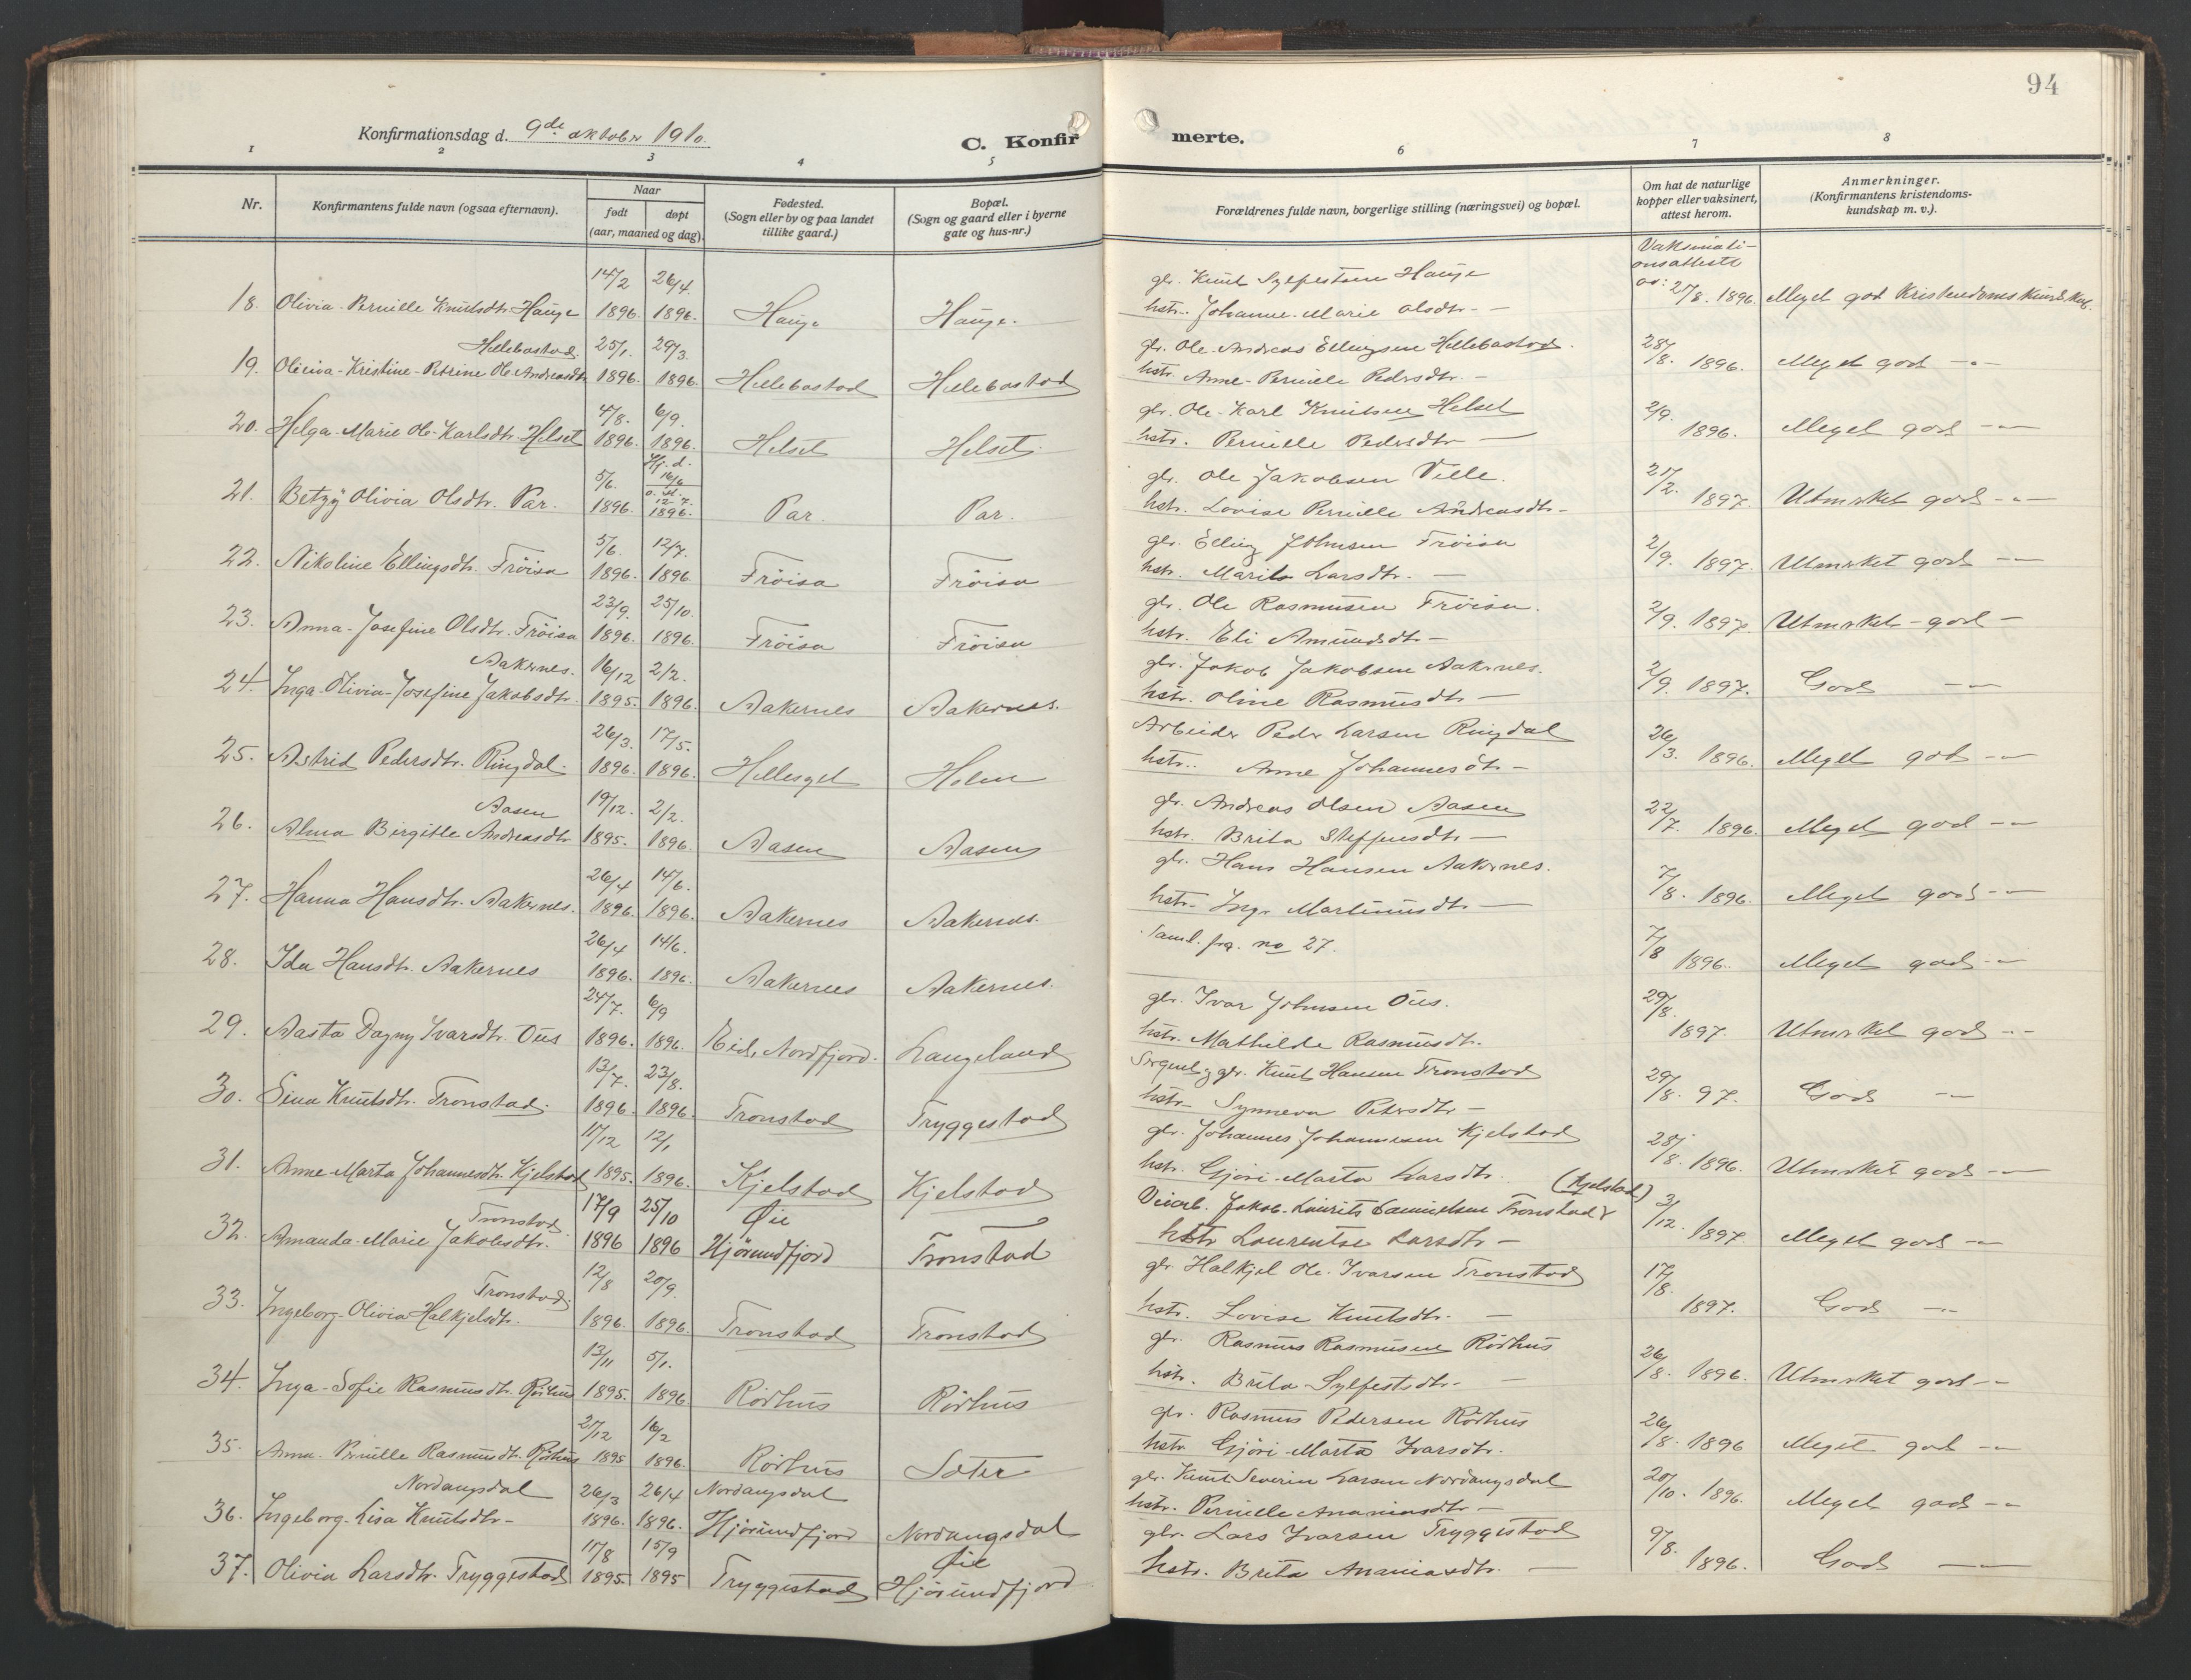 94
Konfirmationsdag d. 9de oktober 1910.
C. Konfirmerte.
1 2 3 4 5 6 7 8
Nr.
Konfirmantens fulde navn (ogsaa efternavn).
Naar
født
døpt
(aar, maaned og dag).
Fødested.
(Sogn eller by og paa landet
tillike gaard.)
Bopæl.
(Sogn og gaard eller i byerne
gate og hus-nr.)
Forældrenes fulde navn, borgerlige stilling (næringsvei) og bopæl.
Om hat de naturlige
kopper eller vaksinert,
attest herom.
Anmerkninger.
(Konfirmantens kristendoms-
kundskap m. v.).
14/2 26/4. gbr. Knut Sylfestsen Hauge Vaksinati-
onsattest
18. Olivia-Pernille Knutsdtr. Hauge 1896. 1896. Hauge Hauge. hstr. Johanne-Marie Olsdtr. - av: 27/8. 1896. Meget god Kristendomskundskab.
Hellebostad. 25/1. 29/3. gbr. Ole-Andreas Ellingsen Hellebostad.
19. Oliviva-Kristine-Petrine Ole Andreasdtr. 1896. 1896. Hellebostad Hellebostad hstr. Anne-Pernille Pedersdtr. - 28/8. 1896. Meget god -"-
4/8. 6/9. gbr. Ole-Karl Knutsen Helset
20. Helga-Marie Ole-Karlsdtr. Helset 1896. 1896. Helset Helset. hstr. Pernille Pedersdtr - 2/9. 1896. Meget god -"-
5/6. Hj. d. 16/6 o. st. gbr. Ole Jakobsen Velle.
21. Betzy Olivia Olsdtr. Par. 1896. 12 7. 1896. Par. Par. hstr. Lovise Pernille Andreasdtr - 27/2. 1897. Utmerket god -"-
5/6. 12/7. gbr. Elling Johnsen Frøisa
22. Nikoline Ellingsdtr. Frøisa 1896. 1896 Frøisa Frøisa hstr. Marita Larsdtr. - 2/9. 1897. Utmerket god -"-
23/9. 25/10. gbr. Ole Rasmusen Frøisa.
23. Anna-Josefine Olsdtr. Frøisa 1896. 1896. Frøisa Frøisa hstr. Eli Amundsdtr - 2/9. 1897. Utmerket-god -
Aakernes. 16/12 2/2. gbr. Jakob Jakobsen Aakernes.
24. Inga-Olivia-Josefine Jakobsdtr. 1895. 1896. Aakernes Aakernes. hstr. Oline Rasmusdtr - 2/9. 1897. God -"-
26/3. 17/5. Arbeider Peder Larsen Ringdal
25. Astrid Pedersdtr. Ringdal. 1896. 1896. Hellesylt Holm hstr. Anne Johannesdtr - 26/3. 1896. Meget god -"-
Aasen 19/12. 2/2. gbr. Andreas Olsen Aasen
26. Alma Birgitte Andreasdtr 1895. 1896. Aasen Aasen hstr. Brita Steffensdtr - 22/7. 1896. Meget god -"-
26/4 14/6. gbr. Hans Hansen Aakernes.
27. Hanna Hansdtr. Aakernes. 1896. 1896. Aakernes Aakernes. hstr. Inger Martinusdtr - 7/8. 1896. Meget god -"-
26/4 14/6.
28. Ida Hansdtr. Aakernes 1896. 1896. Aakernes Aakernes. Saml. frg. no 27. 7/8 1896. Meget god -"-
24/7. 6/9 gbr. Ivar Johnsen Øus.
29. Aasta Dagny Ivarsdtr. Øus 1896. 1896. Eid, Nordfjord. Langeland hstr. Mathilde Rasmusdtr. 29/8. 1897. Utmerket god -"-
13/7. 23/8. Sergent og gbr. Knut Hansen Tronstad
30. Sina Knutsdtr. Tronstad. 1896. 1896. Tronstad Tryggestad hstr. Synneva Petersdtr - 29/8. 97. God -"-
11/12 12/1 gbr. Johannes Johannesen Kjelstad
31. Anne-Marta Johannesdtr. Kjelstad 1895. 1896. Kjelstad Kjelstad hstr. Gjøri-Marta Larsdtr. 28/8. 1896. Utmerket god -"-
Tronstad 17/9 25/10 Øie Veiarb. Jakob-Laurits Samuelsen Tronstad (Kjelstad)
32. Amanda-Marie Jakobsdtr. 1896 1896 Hjørundfjord Tronstad hstr Laurentse Larsdtr - 3/12. 1897 Meget god -"-
Tronstad. 12/8 20/9. gbr. Halkjel Ole-Ivarsen Tronstad
33. Ingeborg-Olivia-Halkjelsdtr. 1896. 1896. Tronstad Tronstad hstr. Lovise Knutsdtr. - 17/8. 1897. God -"-
13/11 5/1. gbr. Rasmus Rasmusen Rørhus
34. Inga-Sofie Rasmusdtr. Rørhus 1895. 1896 Rørhus Rørhus hstr. Brita-Sylfestsdtr. - 26/8. 1896. Utmerket god -"-
27/12 16/2 gbr. Rasmus Pedersen Rørhus
35. Anna-Pernille Rasmusdtr. Rørhus 1895 1896. Rørhus Sæter hstr. Gjøri-Marta Ivarsdtr. 26/8. 1896 Meget god -"-
Nordangsdal 26/3 26/4 Nordangsdal gbr. Knut Severin Larsen Nordangsdal
36. Ingeborg-Lisa Knutsdtr. - 1896. 1896. Hjørundfjord Nordangsdal hstr. Pernille Ananiasdtr - 20/10. 1896. Meget god -"-
11/8 15/9 Øie gbr. Lars Ivarsen Tryggestad
37. Olivia Larsdtr. Tryggestad 1895. 1895 Tryggestad Hjørundfjord hstr. Brita Ananiasdtr. - 9/8. 1896. God -"-